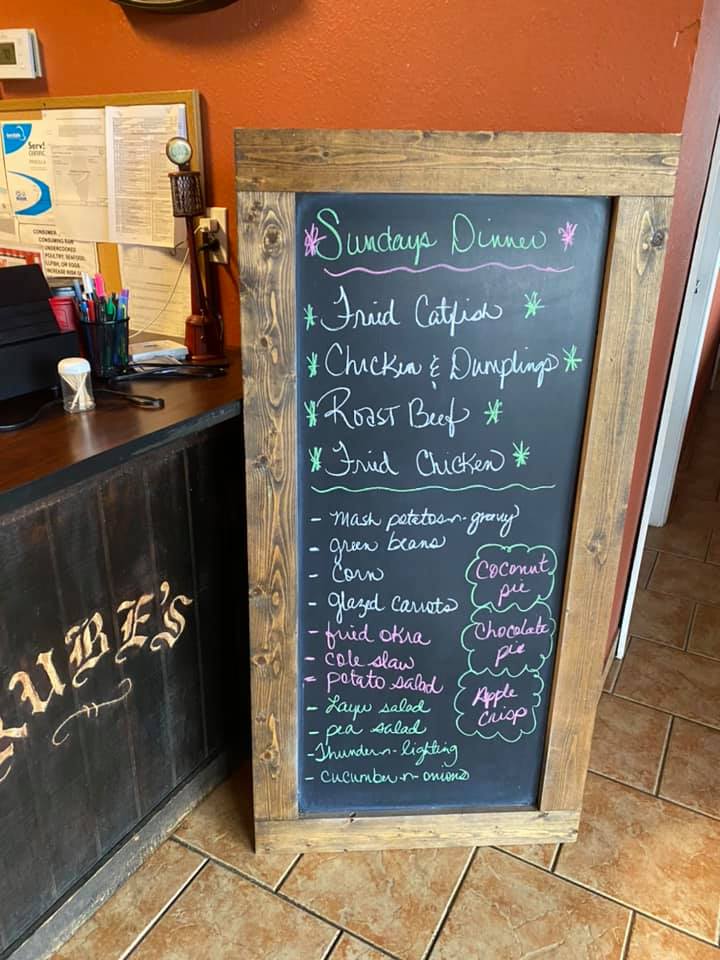 Sundays Dinner
Fried Catfish
Chicken & Dumplings
Roast Beef
Fried Chicken
- Mash potatos-n-gravy
- green beans
- Corn
- glazed carrots
- fried okra
- cole slaw
- potato salad
- Layu salad
- pea salad
- Thunder-n-lighting
- Cucumber-n-onions
Coconut
pie
Chocolate
pie
Apple
Crisp
RUBE'S
CONSUMER
CONSUMING RAW
UNDERCOOKED
POULTRY, SEAFOOD,
OR EGGS
INCREASE